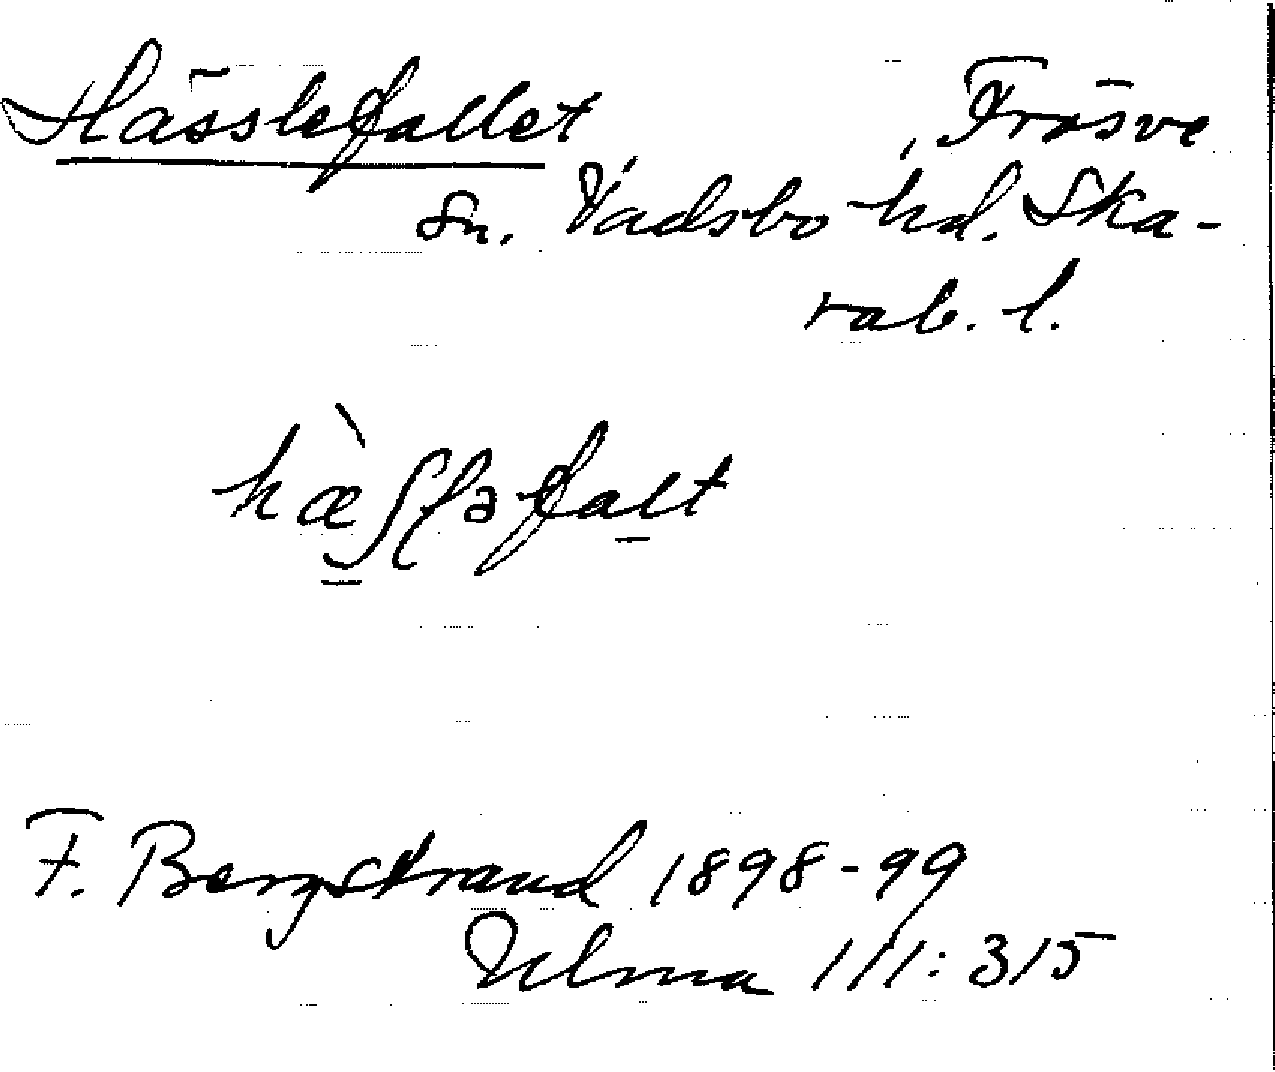 Hässlefallet, Frösve
sn. Vadsbo hd. Ska-
rab. l.
hæ̀ʃʃəfalt
F. Bergstrand 1898-99
Ulma 111:315